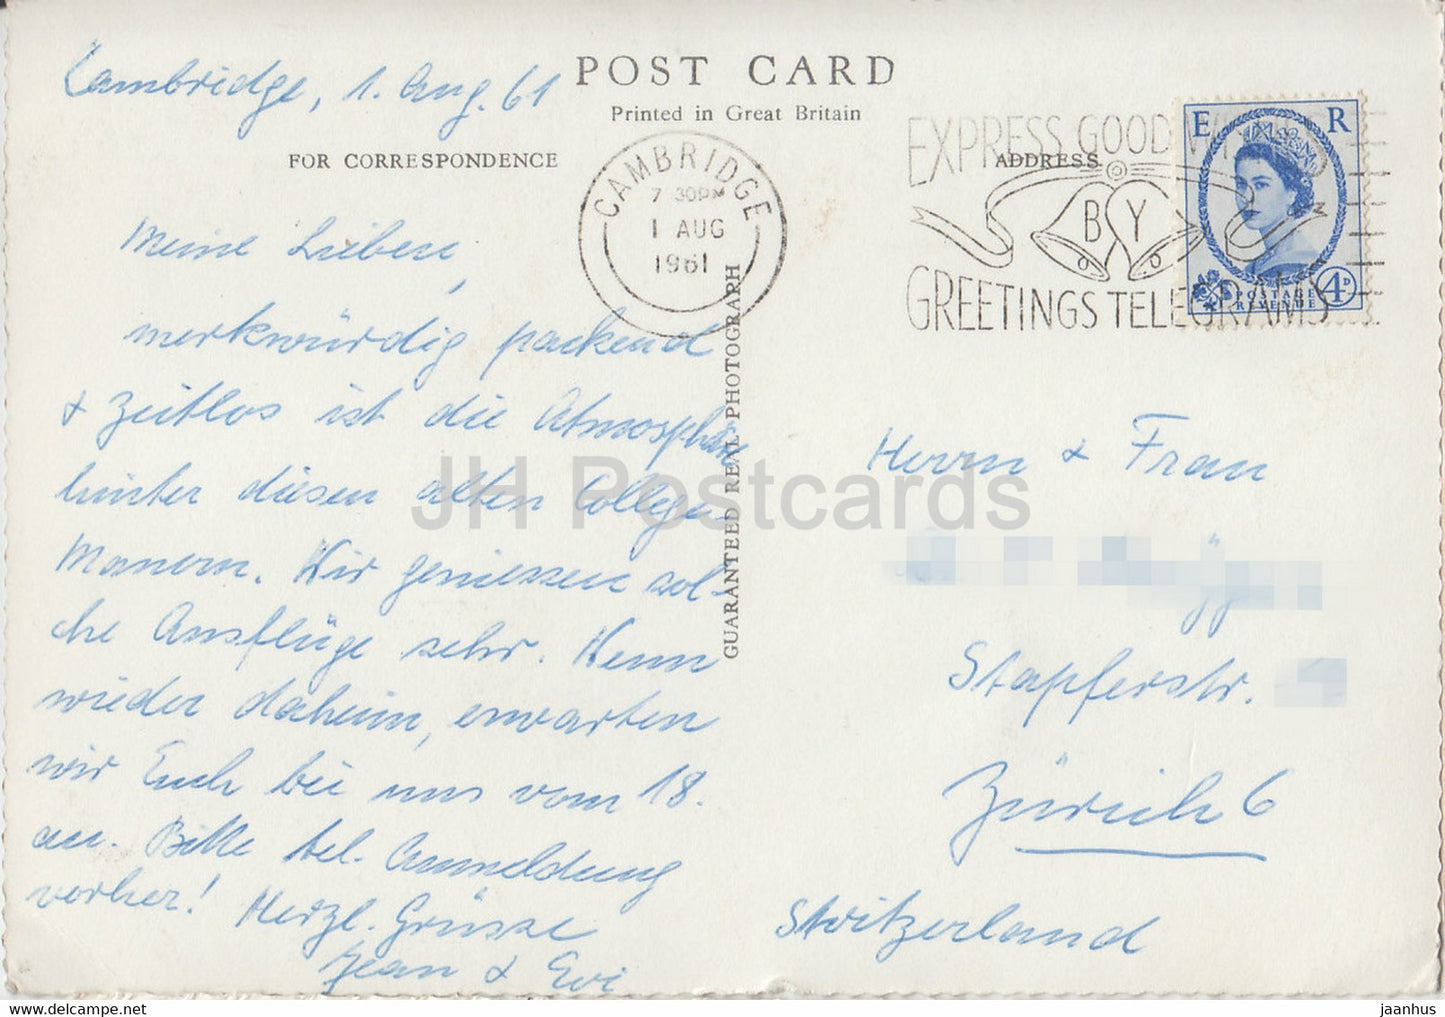 Cambridge, 1. Aug. 61
POST CARD
Printed in Great Britain
FOR CORRESPONDENCE
ADDRESS
CAMBRIDGE
7 30PM
1 AUG
1961
EXPRESS GOOD WISHES
BY
GREETINGS TELEGRAMS
E R
POSTAGE
REVENUE
4D
Meine Lieben,
merkwürdig packend
& zeitlos ist die Atmosphäre
hinter diesen alten College-
Mauern. Wir geniessen sol-
che Ausflüge sehr. Wenn
wieder daheim, erwarten
wir Euch bei uns vom 18.
an. Bitte tel. Anmeldung
vorher! Herzl. Grüsse
Jean & Evi
GUARANTEED REAL PHOTOGRAPH
Herrn & Frau
Stapferstr.
Zürich 6
Switzerland
JH Postcards
www.delcampe.net
jaanhus